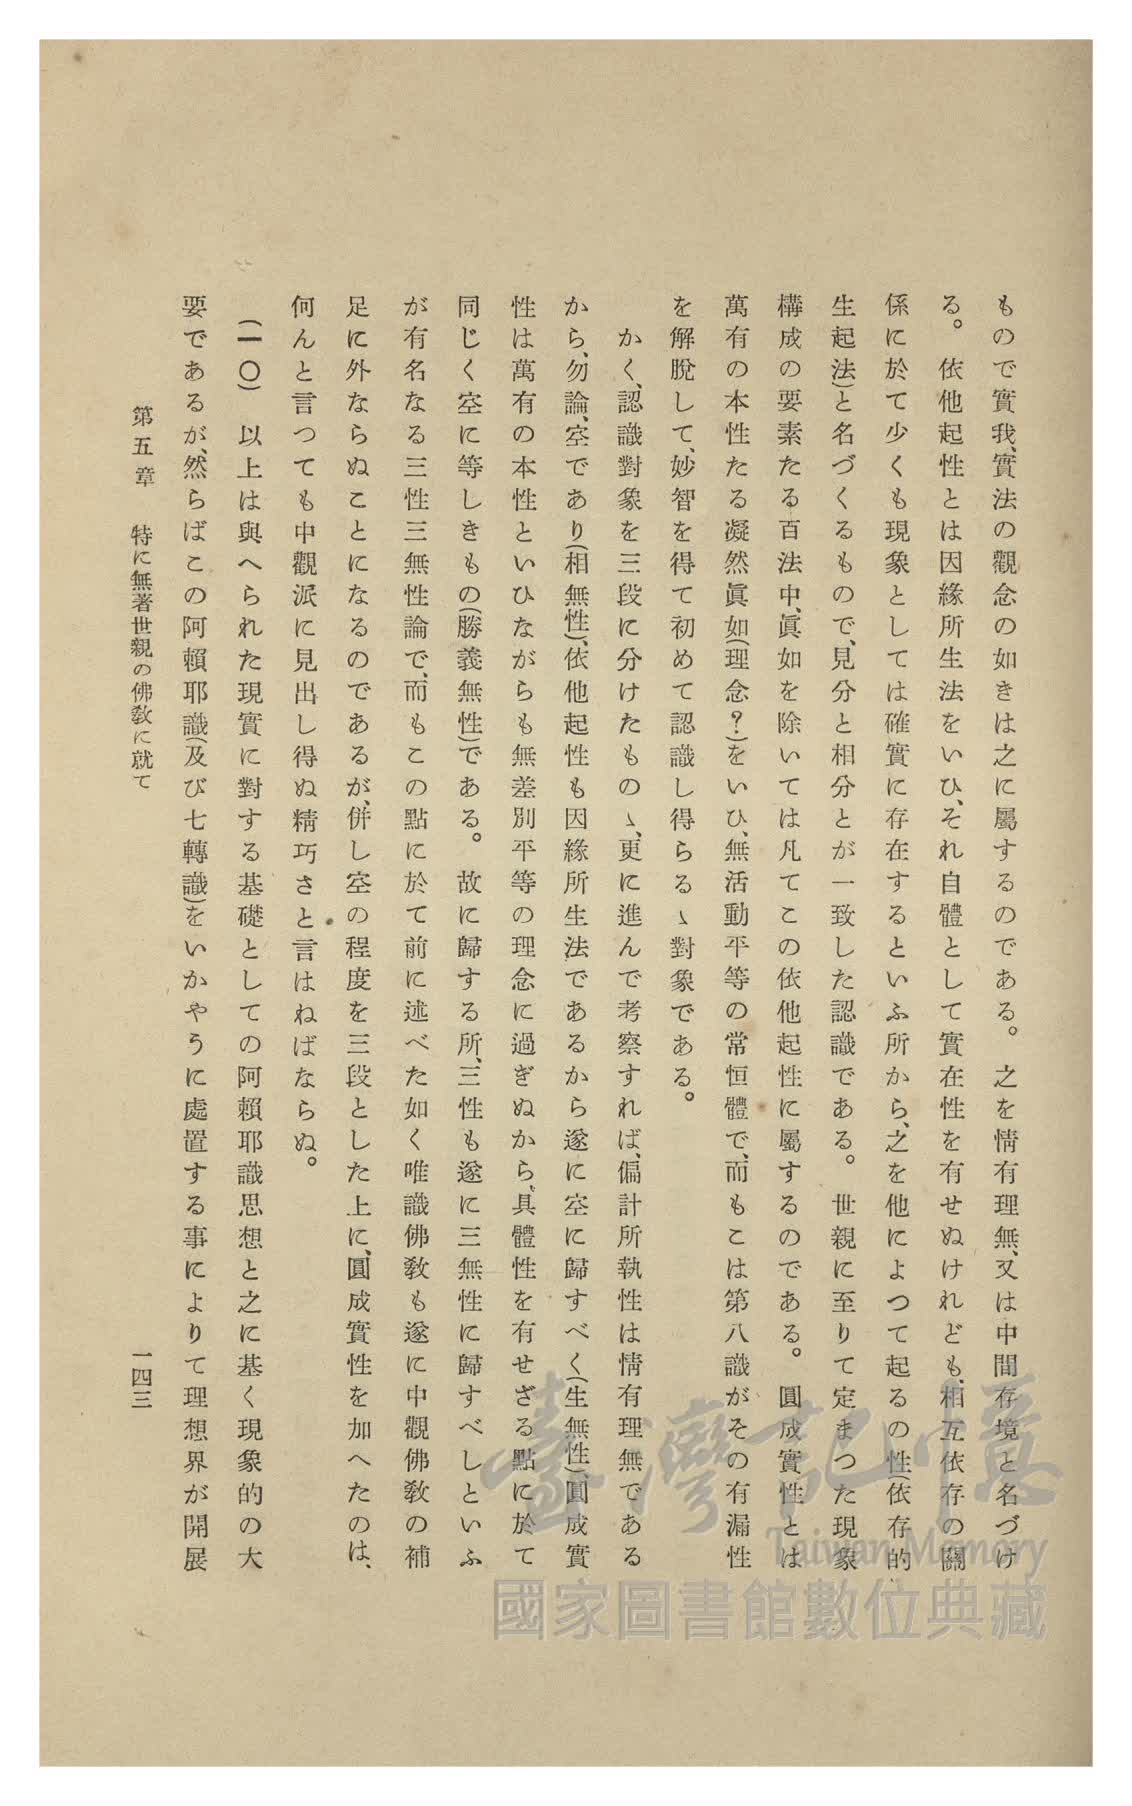 もので實我、實法の觀念の如きは之に屬するのである。 之を情有理無、又は中間存境と名づけ
る。 依他起性とは因緣所生法をいひ、それ自體として實在性を有せぬけれども、相互依存の關
係に於て少くも現象としては確實に存在するといふ所から、之を他によつて起るの性(依存的
生起法)と名づくるもので、見分と相分とが一致した認識である。 世親に至りて定まつた現象
構成の要素たる百法中、眞如を除いては凡てこの依他起性に屬するのである。 圓成實性とは
萬有の本性たる凝然眞如(理念？)をいひ、無活動平等の常恒體で、而もこは第八識がその有漏性
を解脫して、妙智を得て初めて認識し得らるゝ對象である。
かく、認識對象を三段に分けたものゝ、更に進んで考察すれば、偏計所執性は情有理無である
から、勿論、空であり(相無性)、依他起性も因緣所生法であるから遂に空に歸すべく(生無性)、圓成實
性は萬有の本性といひながらも無差別平等の理念に過ぎぬから、具體性を有せざる點に於て
同じく空に等しきもの(勝義無性)である。 故に歸する所、三性も遂に三無性に歸すべしといふ
が有名なる三性三無性論で、而もこの點に於て前に述べた如く唯識佛敎も遂に中觀佛敎の補
足に外ならぬことになるのであるが、併し空の程度を三段とした上に、圓成實性を加へたのは、
何んと言つても中觀派に見出し得ぬ精巧さと言はねばならぬ。
(一〇) 以上は與へられた現實に對する基礎としての阿賴耶識思想と之に基く現象的の大
要であるが、然らばこの阿賴耶識(及び七轉識)をいかやうに處置する事によりて理想界が開展
第五章 特に無著世親の佛敎に就て 一四三
臺灣記憶
Taiwan Memory
國家圖書館數位典藏